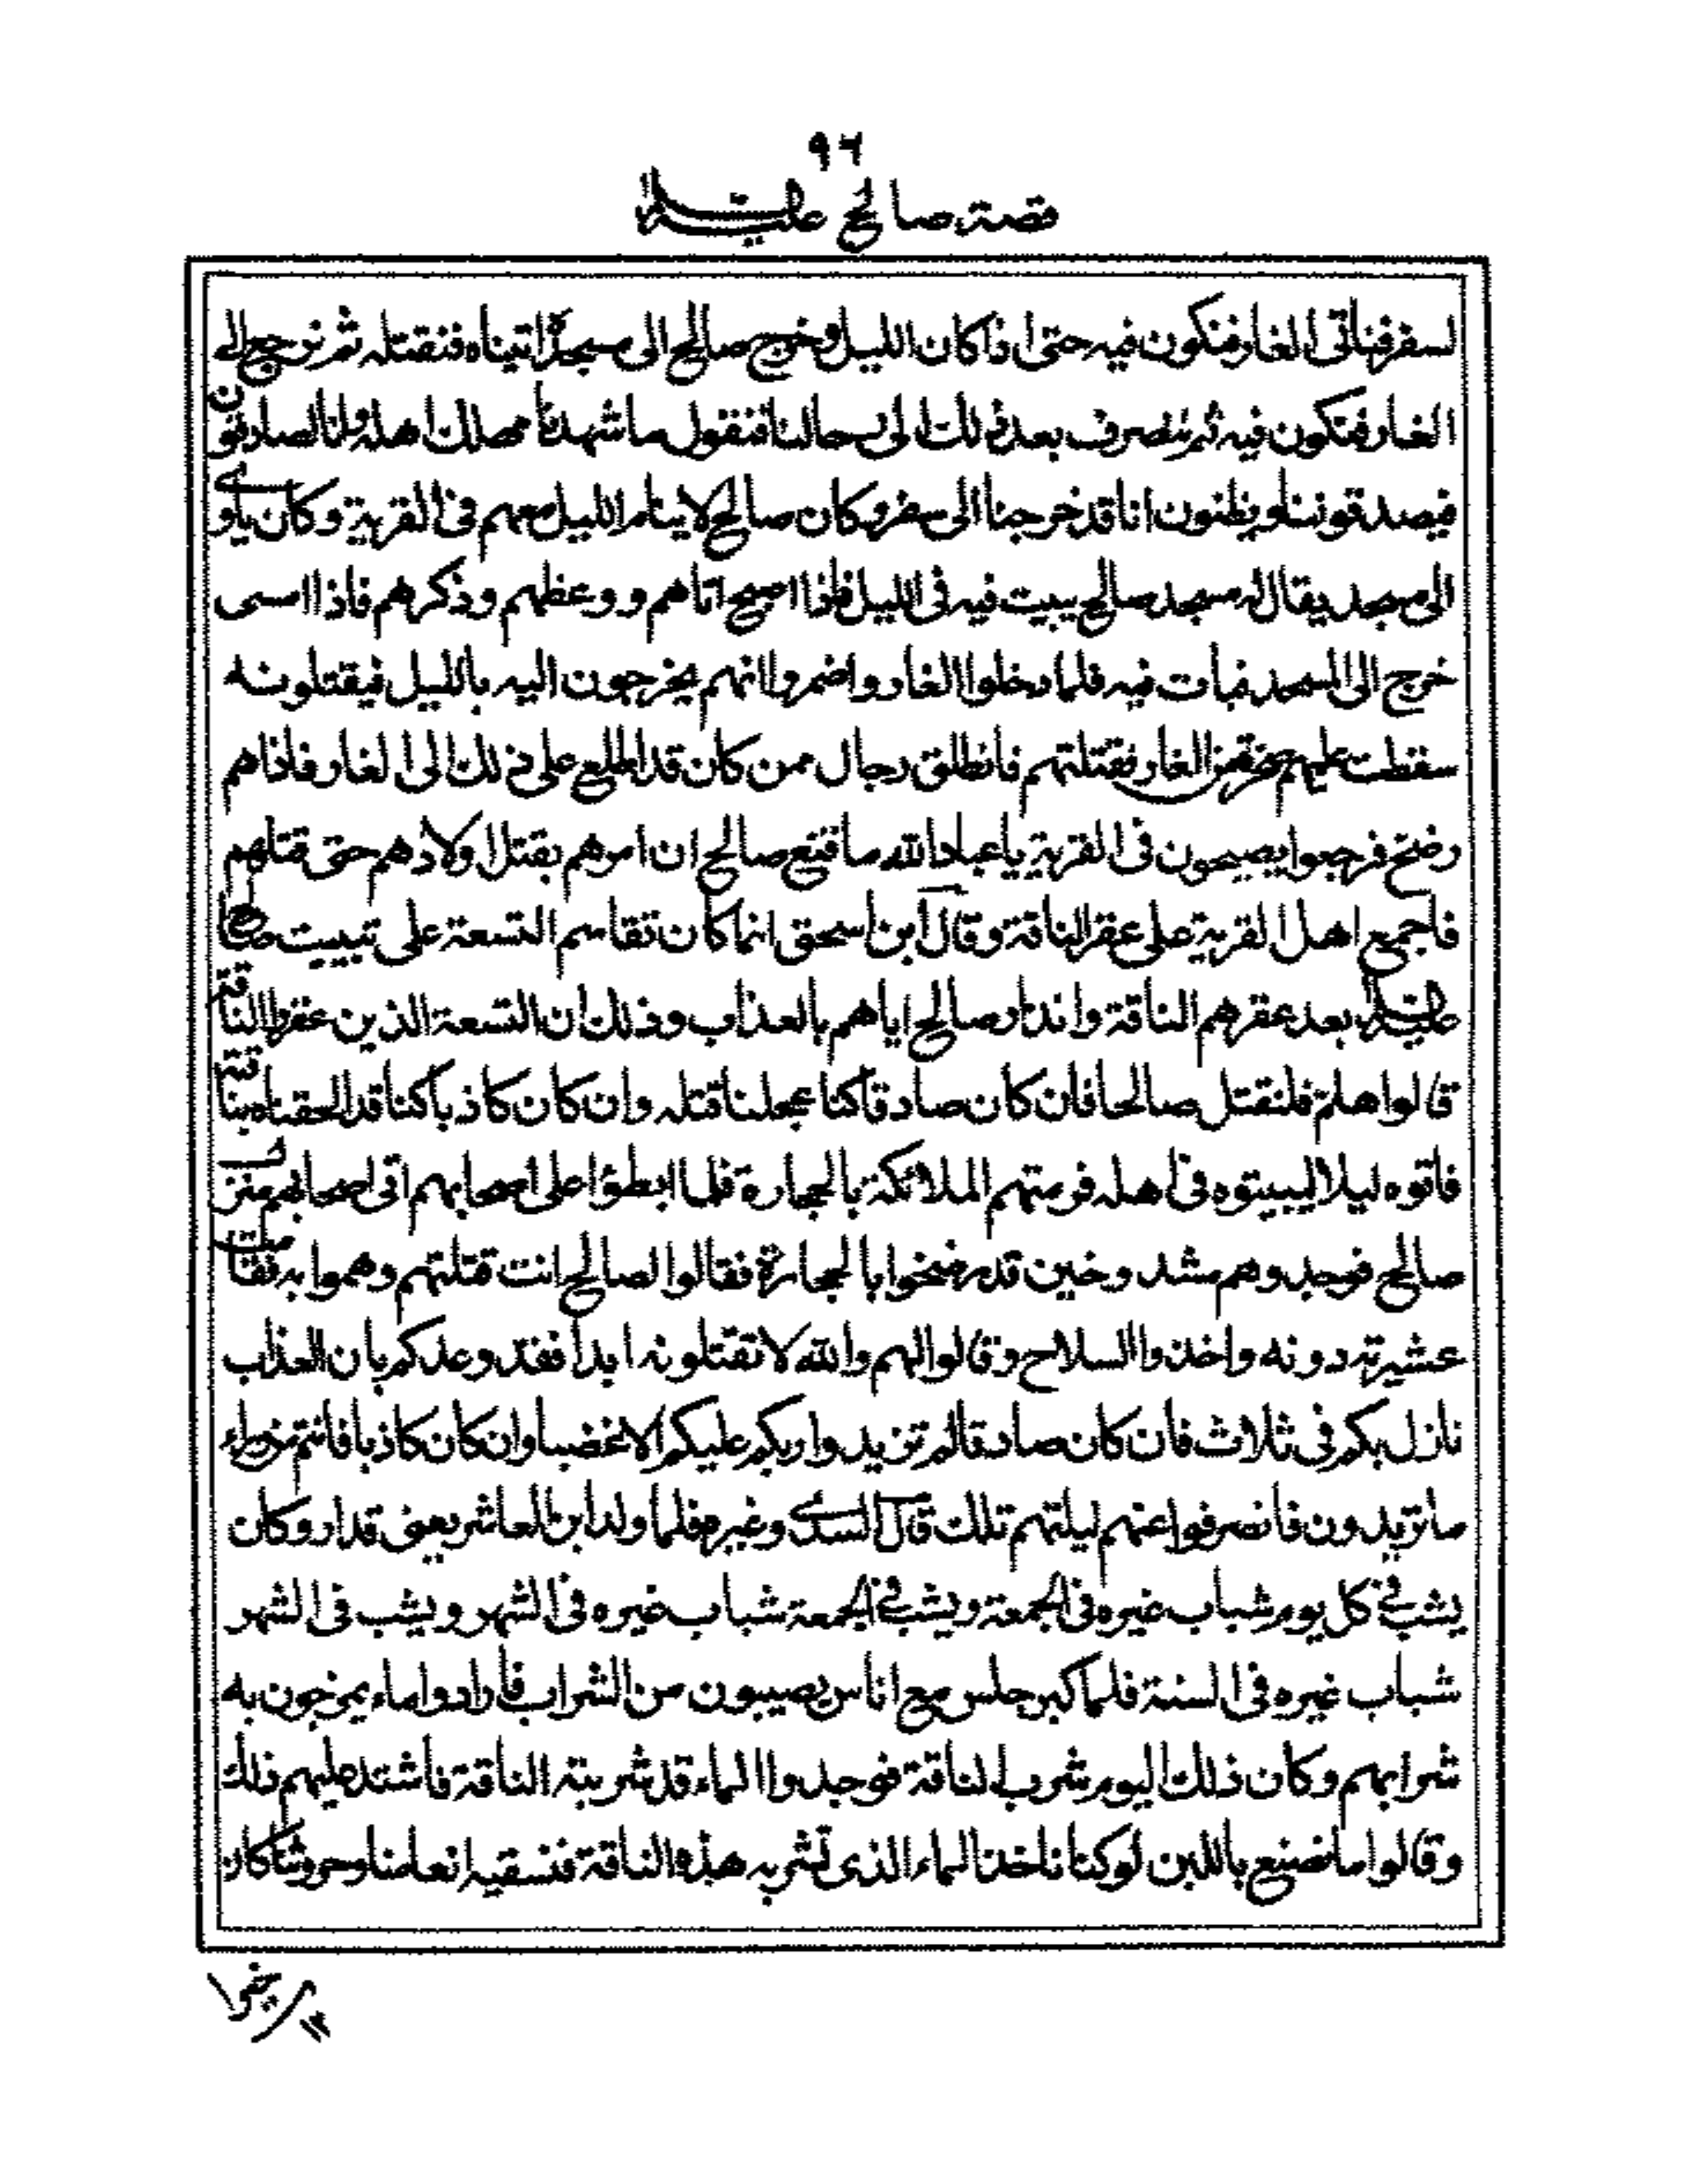 ٩٦
قصة صالح عليه السلام
لسفر فنأتى الغار فنكون فيه حتى اذا كان الليل وخرج صالح الى مسجده اتيناه فنقتله ثم نرجع الى
الغار فنكون فيه ثم ننصرف بعد ذلك الى رحالنا فنقول ما شهدنا مهلك اهله وانا لصادقون
فيصدقوننا ويظنون انا قد خرجنا الى سفر وكان صالح لا ينام الليل معهم فى القرية وكان ياوى
الى مسجد يقال له مسجد صالح يبيت فيه فى الليل فاذا اصبح اتاهم ووعظهم وذكرهم فاذا امسى
خرج الى المسجد فبات فيه فلما دخلوا الغار واضمروا انهم يخرجون اليه بالليل فيقتلونه
سقطت عليهم صخرة من الغار فقتلتهم فانطلق رجال ممن كان قد اطلع على ذلك الى الغار فاذا هم
رضخ فرجعوا يصيحون فى القرية يا عباد الله ما قنع صالح ان امرهم بقتل اولادهم حتى قتلهم
فاجمع اهل القرية على عقر الناقة وقال ابن اسحق انما كان تقاسم التسعة على تبييت صالح
عليه السلام بعد عقرهم الناقة وانذار صالح اياهم بالعذاب وذلك ان التسعة الذين عقروا الناقة
قالوا هلم فلنقتل صالحا فان كان صادقا كنا عجلنا قتله وان كان كاذبا كنا قد الحقناه بناقته
فاتوه ليلا ليبيتوه فى اهله فرمتهم الملائكة بالحجارة فلما ابطؤا على اصحابهم اتى اصحابهم منزل
صالح فوجدوهم مشدوخين قد رضخوا بالحجارة فقالوا لصالح انت قتلتهم وهموا به فقامت
عشيرته دونه واخذوا السلاح وقالوا لهم والله لا تقتلونه ابدا فقد وعدكم بان العذاب
نازل بكم فى ثلاث فان كان صادقا لم تزيدوا ربكم عليكم الا غضبا وان كان كاذبا فانتم من وراء
ما تريدون فانصرفوا عنهم ليلتهم تلك قال السدى وغيره فلما ولد ابن العاشر يعنى قدار وكان
يشب فى كل يوم شباب غيره فى الجمعة ويشب فى الجمعة شباب غيره فى الشهر ويشب فى الشهر
شباب غيره فى السنة فلما كبر جلس مع اناس يصيبون من الشراب فارادوا ماء يمزجون به
شرابهم وكان ذلك اليوم شرب الناقة فوجدوا الماء قد شربته الناقة فاشتد عليهم ذلك
وقالوا ما نصنع باللبن لو كنا ناخذ الماء الذى تشربه هذه الناقة فنسقيه انعامنا وحروثنا كان